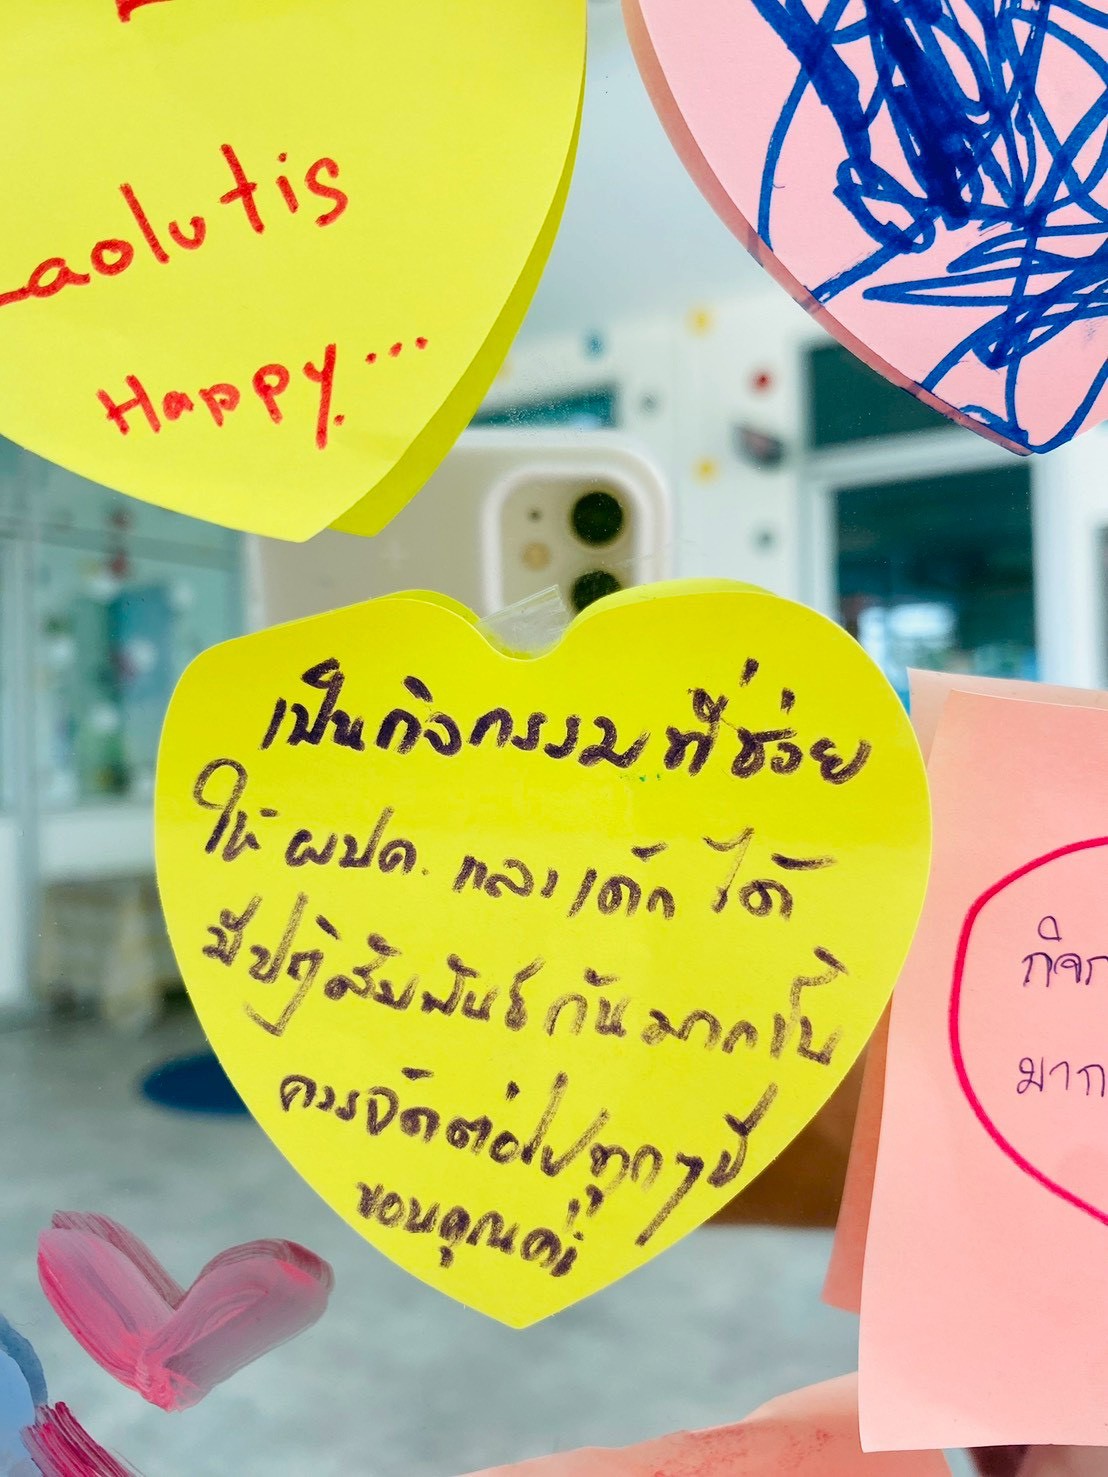 Laolutis
Happy...
เป็นกิจกรรมที่ช่วย
ให้ ผปค. และเด็ก ได้
มีปฏิสัมพันธ์กันมากขึ้น
ควรจัดต่อไปทุกๆปี
ขอบคุณค่ะ
กิจก
มาก